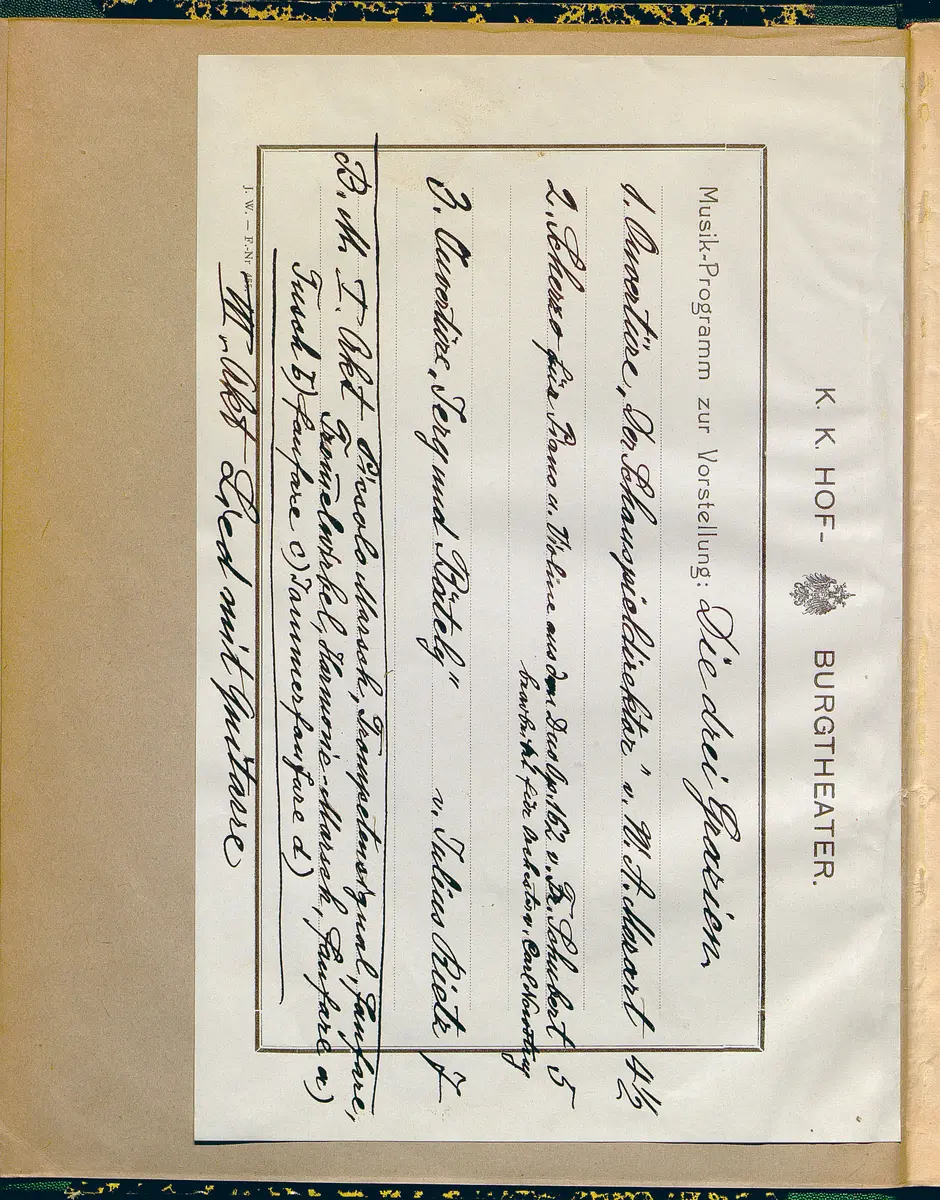 K. K. HOF- BURGTHEATER.
Musik-Programm zur Vorstellung: Die drei Grazien.
1. Ouvertüre „Der Schauspieldirektor" v. W. A. Mozart 4½
2. Scherzo für Piano u. Violine aus dem Duo Op. 162 v. Fr. Schubert 5
bearbeitet für Orchester, Carl
3. Ouvertüre „Jery und Bätely" v. Julius Rietz 7
B. M. I. Akt Picolo Marsch, Trompetensignal, Fanfare,
Trom̄elwirbel, Harmonie-Marsch, Fanfare a)
Tusch b) Fanfare c) Jammerfanfare d)
J. W. — F.-Nr
III. Akt Lied mit Guitarre